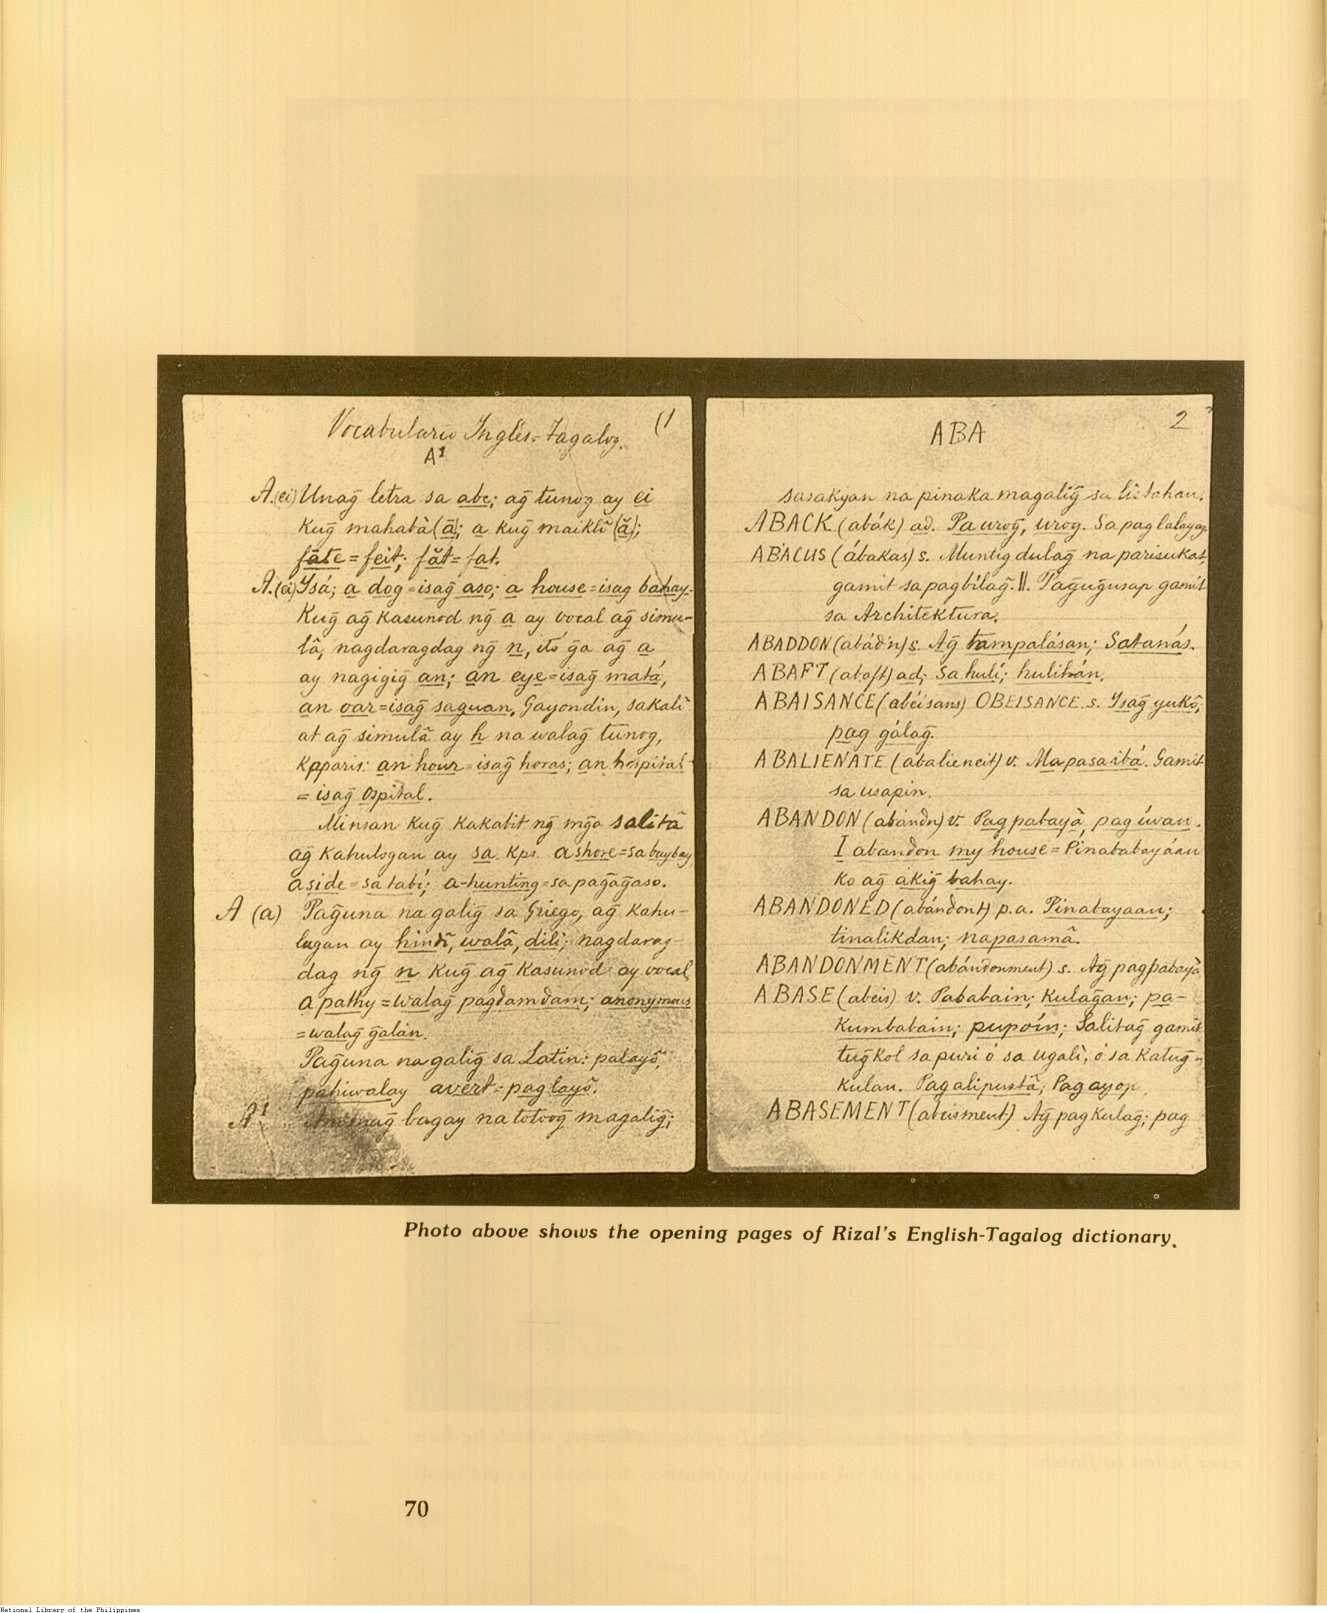 Vocabulario Inglés-Tagalog. (1
A¹
A.(ei) Unag̃ letra sa abc; ag̃ tunog ay ei
kug̃ mahabà (ā); a kug̃ maiklî (ă);
fāte = feit; făt = fat.
A.(ei) Ysá; a dog = isag̃ aso; a house = isag bahay.
Kug̃ ag̃ kasunod ng̃ a ay vocal ag̃ simu-
lâ, nagdaragdag ng̃ n, itó g̃a ag̃ a
ay nagigig̃ an; an eye = isag̃ matá,
an oar = isag̃ saguan. Gayondin, sakali
at ag̃ simulâ ay h na walag̃ tunog,
kpparis: an hour = isag̃ horas; an hospital
= isag̃ ospital.
Minsan kug̃ kakabit ng̃ mg̃a salitâ
ag̃ kahulogan ay sa. Kps. a shore = sa baybay
aside = sa tabí; a-hunting = sa pag̃ag̃aso.
A (a) Pag̃una na galig̃ sa Griego, ag̃ kahu-
lugan ay hindî, walâ, dili; nagdarag-
dag ng̃ n kug̃ ag̃ kasunod ay vocal
apathy = walag̃ pagdamdam; anonymous
= walag̃ g̃alan.
Pag̃una na galig̃ sa Latin: palayô,
pahiwalay avert = paglayô.
A¹ bagay na totoog̃ magalig̃;
2
ABA
sasakyan na pinaka magalig̃ sa listahan.
ABACK (abák) ad. Pa urog̃, urog. Sa paglalayag
ABACUS (ábakas) s. Muntig dulag̃ na parisukat,
gamit sa pagbilag̃. ||. Pag̃ug̃usap gamit
sa Architektura.
ABADDON (abádn) s. Ag̃ tampalásan; Satanás.
ABAFT (abaft) ad; Sa hulí; hulihán.
ABAISANCE (abéisans) OBEISANCE. s. Ysag̃ yukô;
pag gálag̃.
ABALIENATE (abalieneit) v. Mapasaibá. Gamit
sa usapin.
ABANDON (abándn) v. Pagpabayà, pag íwan.
I abandon my house = Pinababayáan
ko ag̃ akig̃ bahay.
ABANDONED (abándont) p.a. Pinabayaan;
tinalikdan; napasamâ.
ABANDONMENT (abándonment) s. Ag̃ pagpabayà
ABASE (abeis) v. Pababain; kulag̃an; pa-
kumbabain; pupoín; Salitag̃ gamit
tug̃kol sa puri ó sa ugali, ó sa katug̃-
kulan. Pag alipustâ; Pag ayop
ABASEMENT (abeisment) Ag̃ pagkulag̃; pag
Photo above shows the opening pages of Rizal's English-Tagalog dictionary.
70
National Library of the Philippines